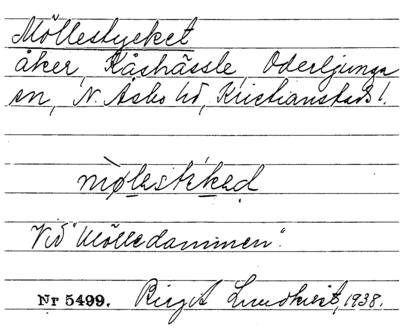 Möllestycket
åker, Kåshässle, Oderljunga
sn, N. Åsbo hd, Kristianstads l.
Vid "Mölledammen".
Nr 5499. Birgit Lundkvist, 1938.